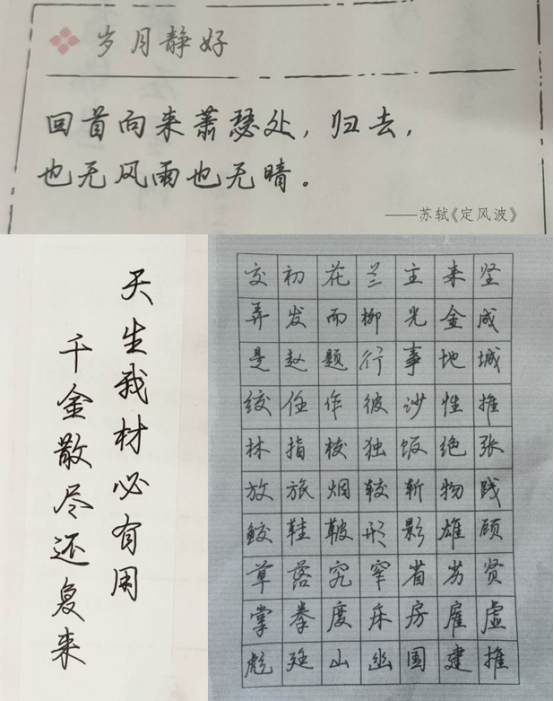 岁月静好
回首向来萧瑟处，归去，
也无风雨也无晴。
——苏轼《定风波》
天生我材必有用
千金散尽还复来
交初花兰主来坚
弄发而柳光金成
是赵题行事地城
绞任作彼沙性推
林指校独饭绝张
放旅烟较斩物践
鲛鞋皲形影雄顾
草落究窄省劣贤
掌拳度床房雇虚
彪延山幽国建推